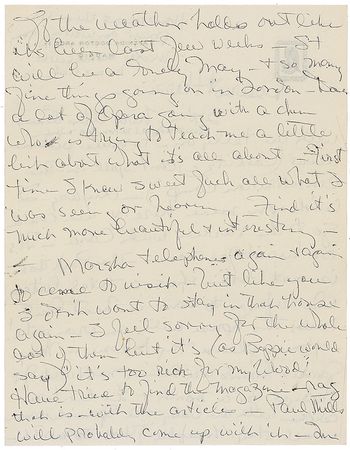 If the weather holds out like
it's been last few weeks — It
will be a lovely May, & so many
fine things going on in London – have
a lot of Opera going with a chum
who is trying to teach me a little
bit about what it's all about — First
time I knew sweet fuck all what I
was seeing or hearing. Find it's
much more beautiful & interesting –
— Marsha telephones again & again
to come to visit – but like you
I don't want to stay in that house
again — I feel sorry for the whole
lot of them but it's (as would
say) "it's too rich for my blood".
Have tried to find the magazine – rag
that is – with the articles — Paul Mills
will probably come up with it –